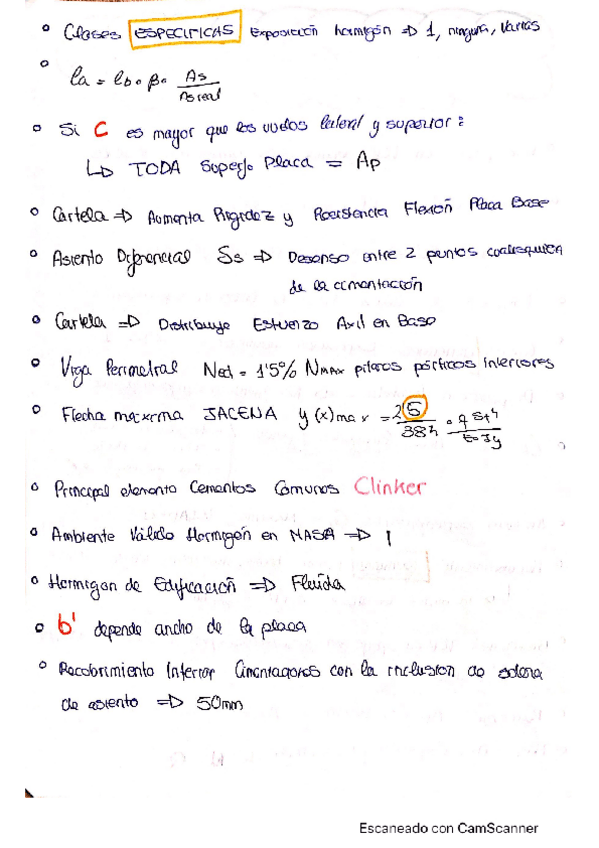 Clases ESPECIFICAS Exposición hormigón => 1, ninguna, varias
la = lb · β · As / As real
Si C es mayor que los vuelos lateral y superior:
↳ TODA Superf. Placa = Ap
Cartela => Aumenta Rigidez y Resistencia Flexión Placa Base
Asiento Diferencial Ss => Descenso entre 2 puntos cualesquiera
de la cimentación
Cartela => Distribuye Esfuerzo Axil en Base
Viga Perimetral Ned = 1'5% Nmax pilares pórticos interiores
Flecha máxima JACENA y(x)max =
Principal elemento Cementos Comunes Clinker
Ambiente Válido Hormigón en MASA => I
Hormigón de Edificación => Fluida
b' depende ancho de la placa
Recubrimiento Inferior Cimentaciones con la inclusion de solera
de asiento => 50mm
Escaneado con CamScanner